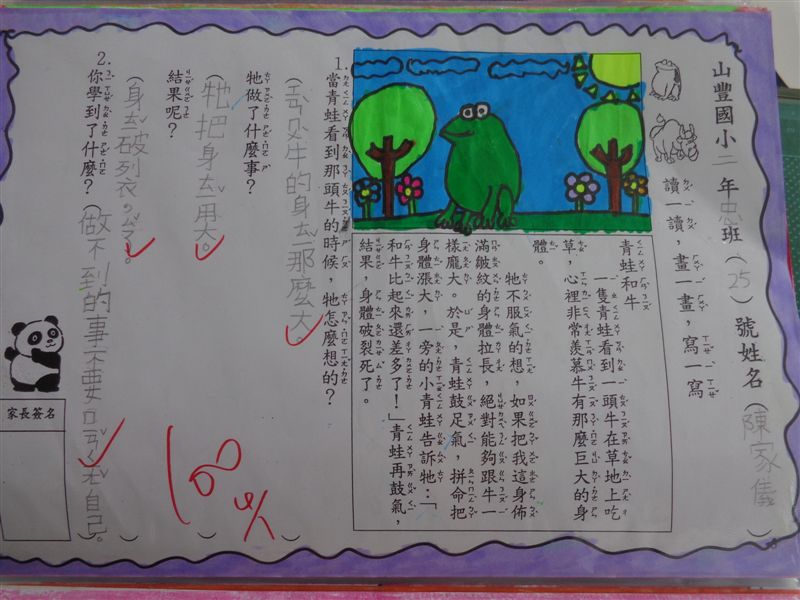 山豐國小二年忠班(25)號姓名(陳家儀)
讀一讀，畫一畫，寫一寫
青蛙和牛
一隻青蛙看到一頭牛在草地上吃
草，心裡非常羨慕牛有那麼巨大的身
體。
牠不服氣的想，如果把我這身佈
滿皺紋的身體拉長，絕對能夠跟牛一
樣龐大。於是，青蛙鼓足氣，拼命把
身體漲大，一旁的小青蛙告訴牠：「
和牛比起來還差多了！」青蛙再鼓氣，
結果，身體破裂死了。
1.當青蛙看到那頭牛的時候，牠怎麼想的？
(牛的身ㄊㄧˇ那麼大。)
牠做了什麼事？
(牠把身ㄊㄧˇ用大。)
結果呢？
(身ㄊㄧˇ破列)
2.你學到了什麼？(做不到的事不要自己。)
100
家長簽名